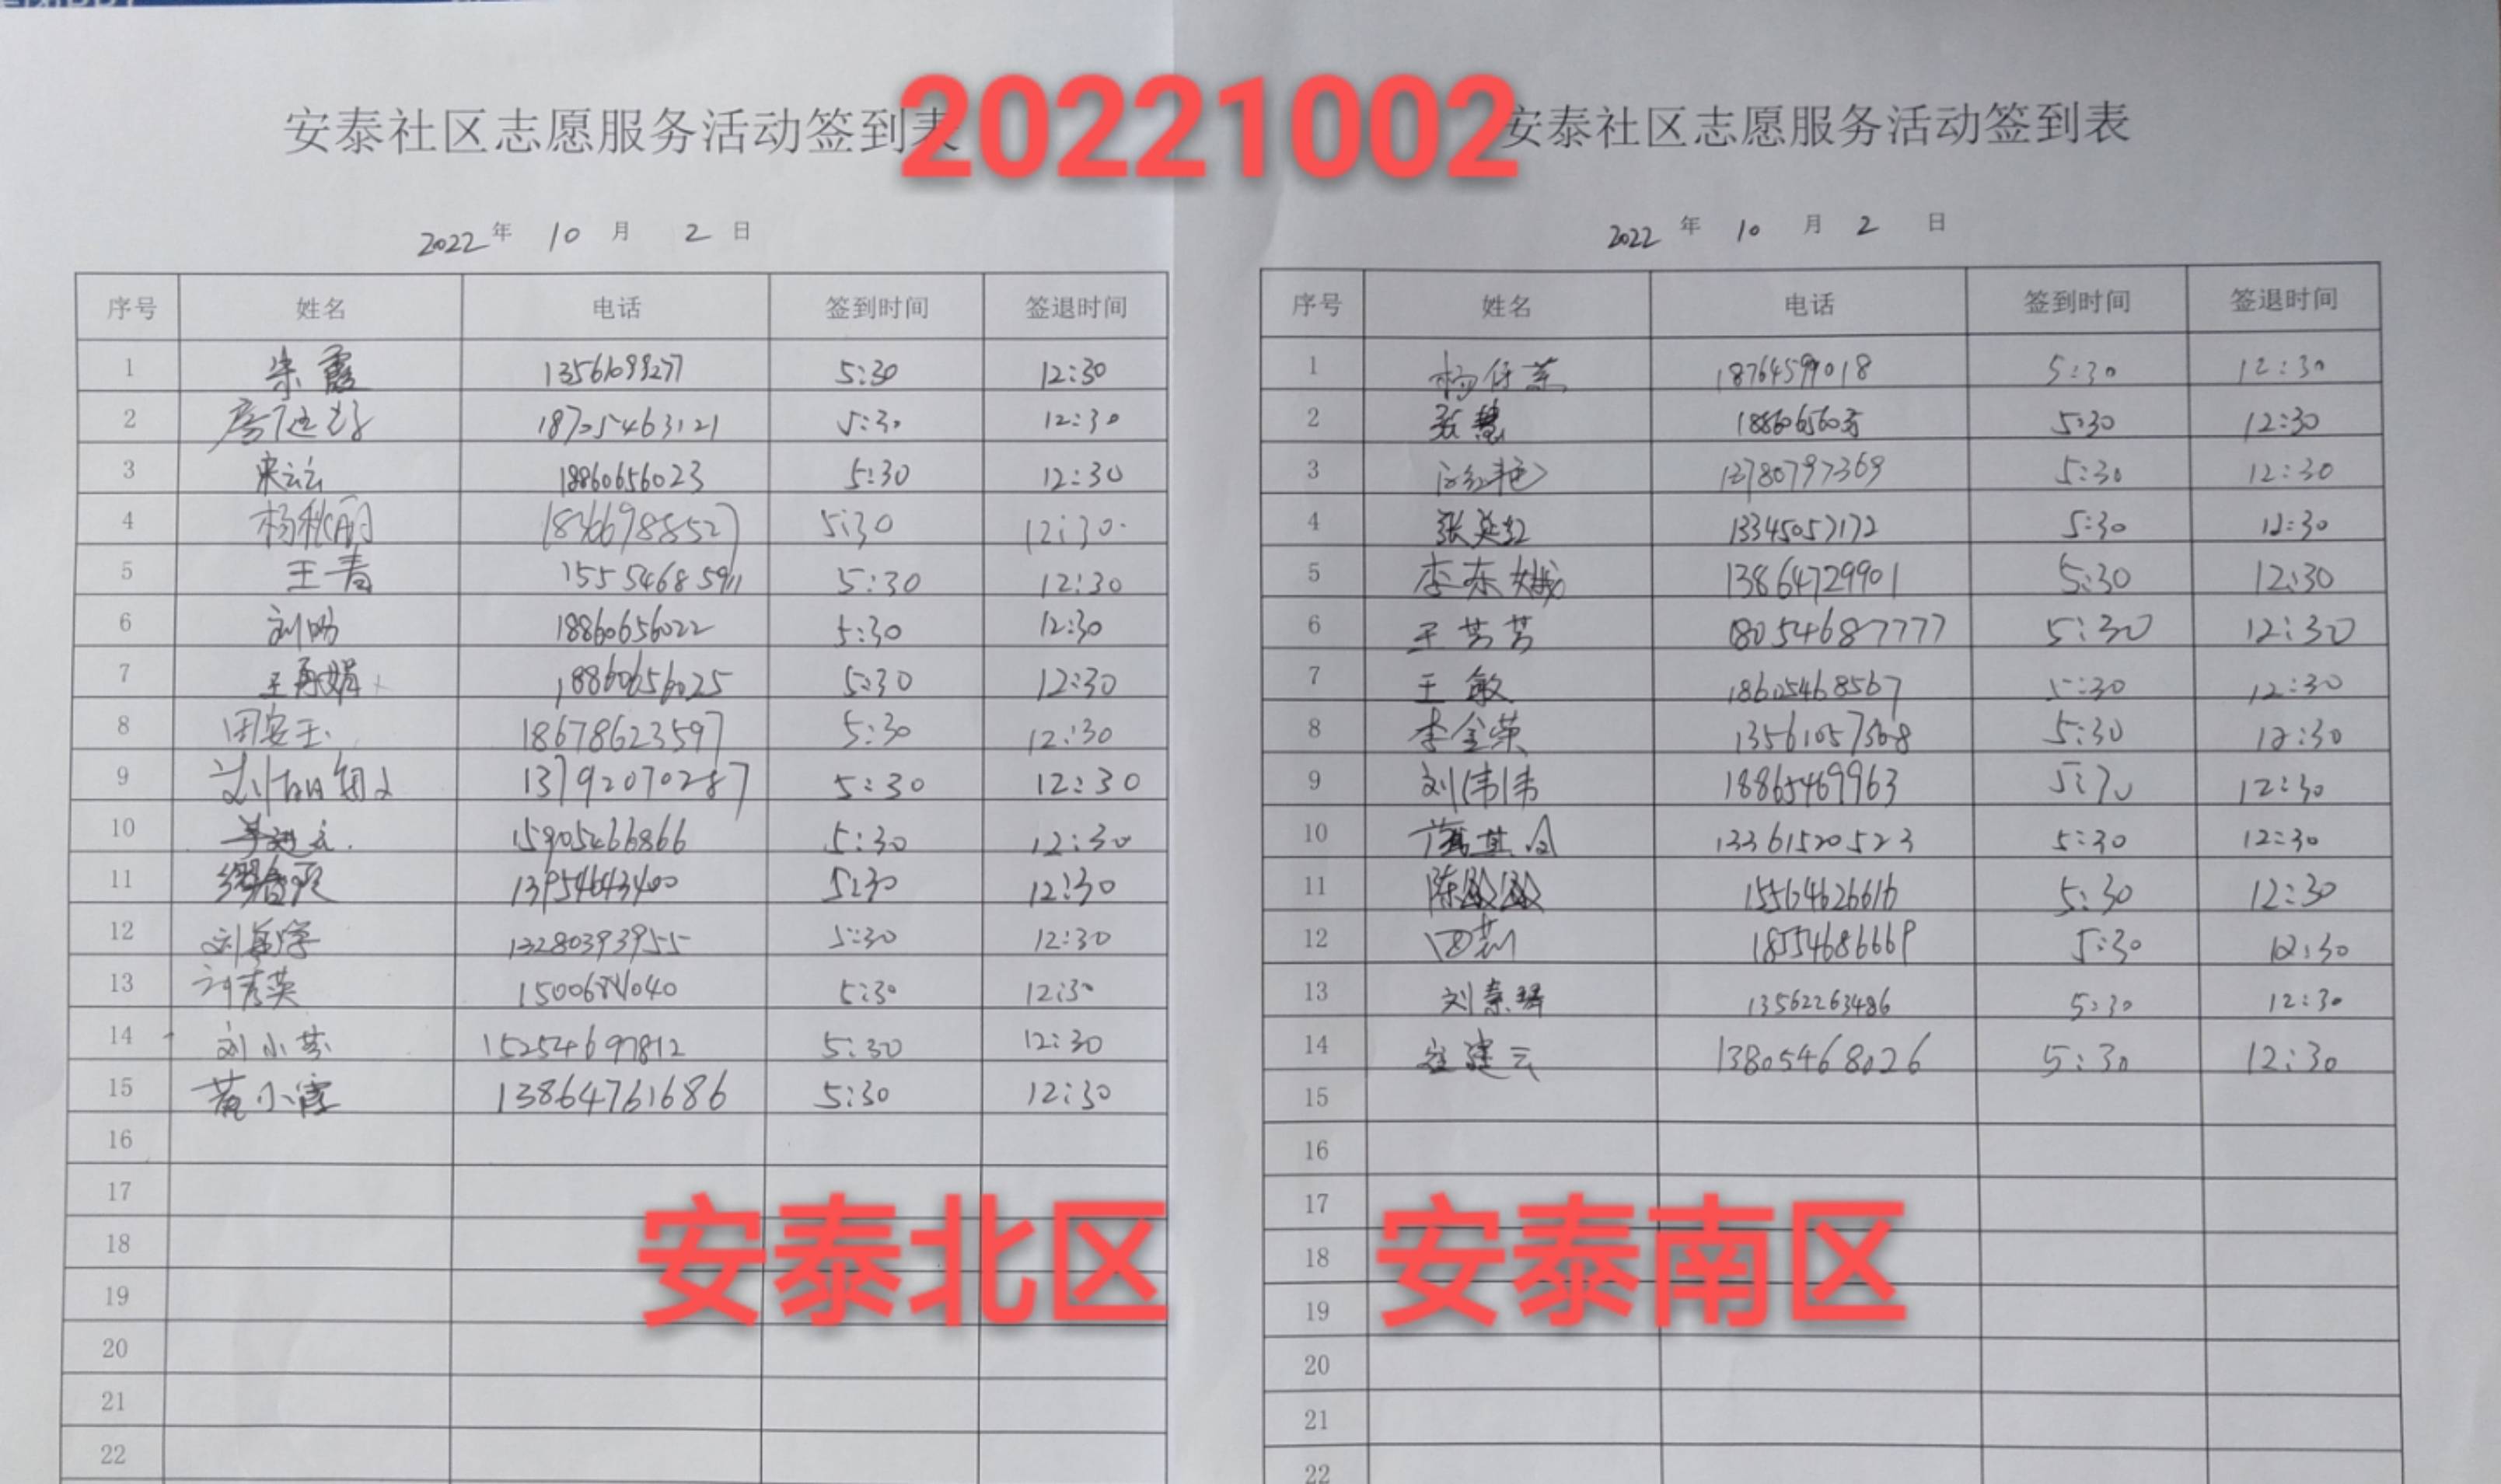 20221002
安泰社区志愿服务活动签到表
2022年 10月 2日
序号 姓名 电话 签到时间 签退时间
1 朱霞 5:30 12:30
2 18705463121 5:30 12:30
3 宋云云 18860656023 5:30 12:30
4 杨秋丽 18366988527 5:30 12:30
5 王青 15554685911 5:30 12:30
6 18860656022 5:30 12:30
7 王再娟 18860656025 5:30 12:30
8 18678623597 5:30 12:30
9 13792070287 5:30 12:30
10 15905466866 5:30 12:30
11 13954643400 5:30 12:30
12 13280393955 5:30 12:30
13 5:30 12:30
14 刘小芬 15254697812 5:30 12:30
15 黄小霞 13864761686 5:30 12:30
16
17
18
19
20
21
22
安泰北区
安泰社区志愿服务活动签到表
2022年 10月 2日
序号 姓名 电话 签到时间 签退时间
1 18764599018 5:30 12:30
2 张慧 5:30 12:30
3 13780797369 5:30 12:30
4 张延红 13345057172 5:30 12:30
5 李东娥 13864729901 5:30 12:30
6 王芳芳 18054687777 5:30 12:30
7 王敏 18605468567 5:30 12:30
8 李金荣 13561057308 5:30 12:30
9 刘伟伟 18865469963 5:30 12:30
10 13361520523 5:30 12:30
11 陈敏敏 15564626616 5:30 12:30
12 田莉 18554686669 5:30 12:30
13 13562263486 5:30 12:30
14 13805468026 5:30 12:30
15
16
17
18
19
20
21
22
安泰南区